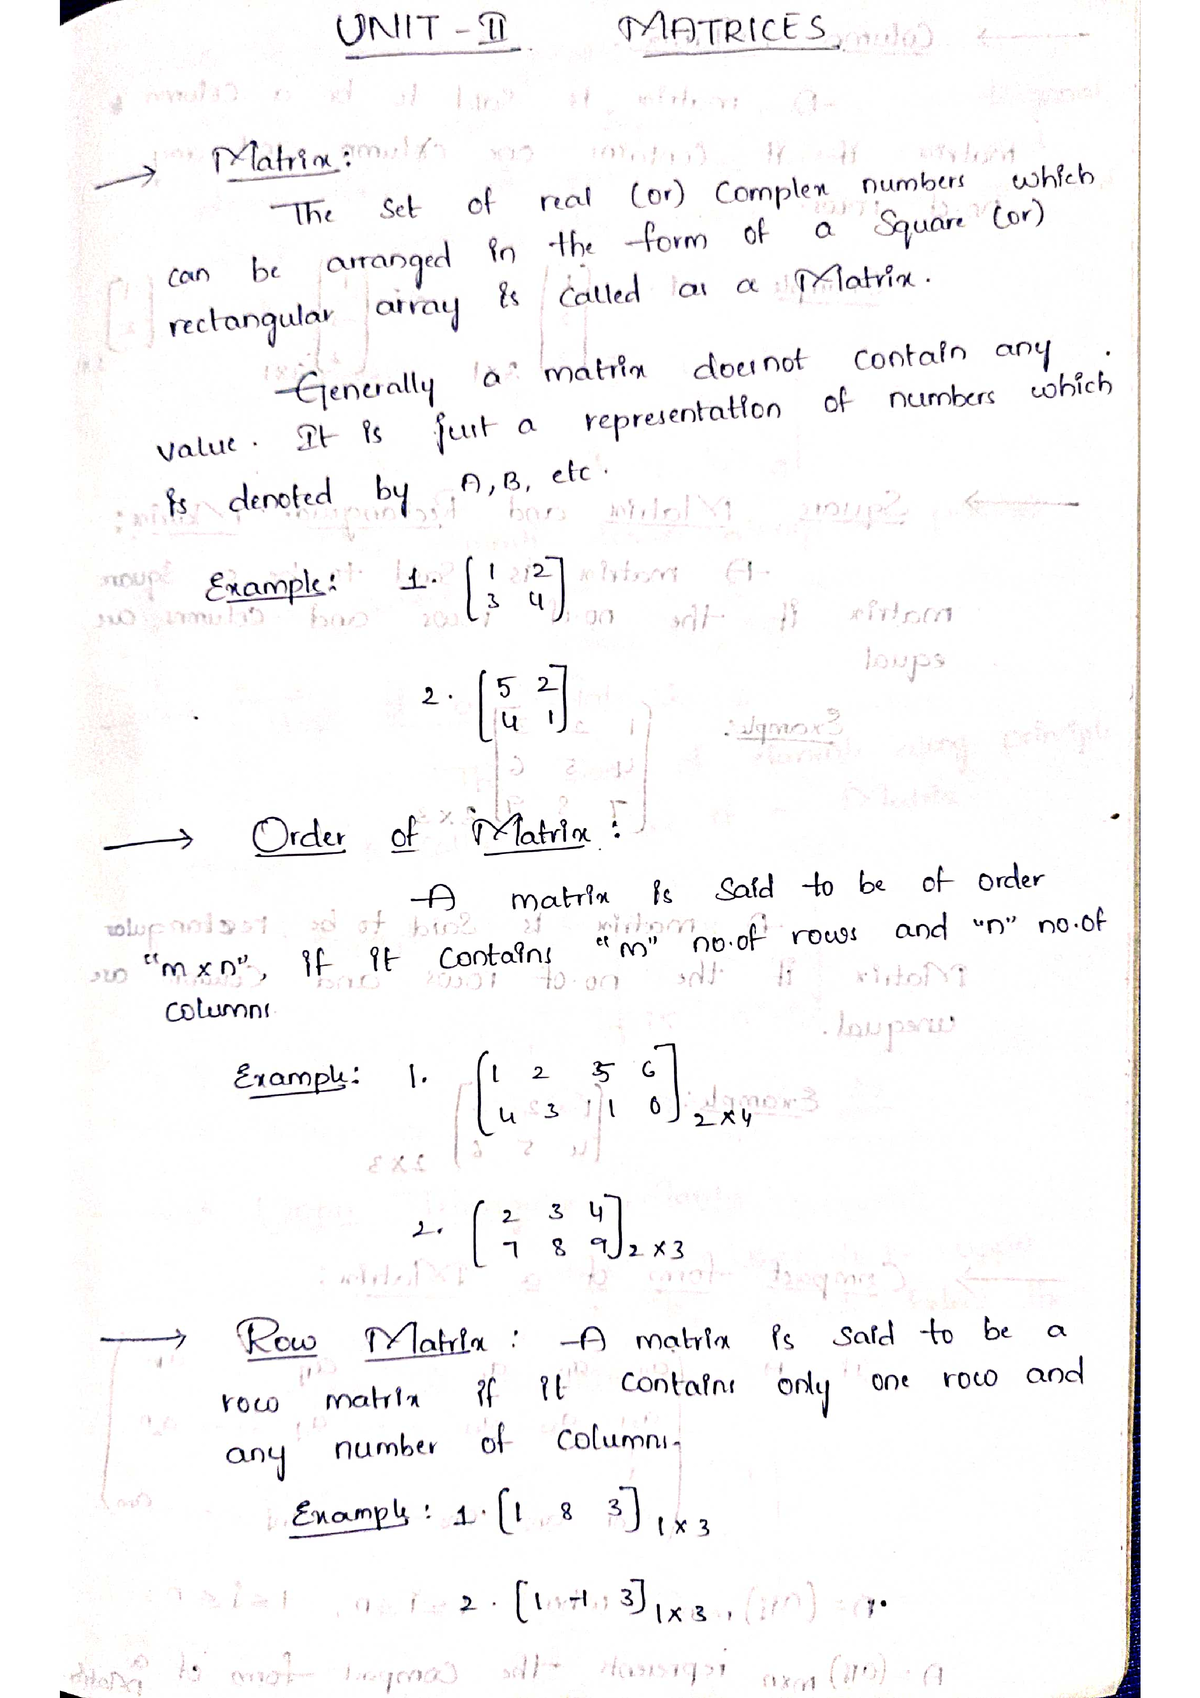 UNIT - II MATRICES
→ Matrix :
The set of real (or) Complex numbers which
can be arranged in the form of a Square (or)
rectangular array is called as a Matrix.
Generally a matrix doesnot contain any
value. It is just a representation of numbers which
is denoted by A, B, etc.
Example: 1. [1 2
3 4]
2. [5 2
4 1]
→ Order of Matrix :
A matrix is said to be of order
"m x n", if it contains "m" no.of rows and "n" no.of
columns.
Example: 1. [1 2 5 6
4 3 1 0] 2 x 4
2. [2 3 4
7 8 9] 2 x 3
→ Row Matrix : A matrix is said to be a
row matrix if it contains only one row and
any number of columns.
Example : 1. [1 8 3] 1 x 3
2. [1 -1 3] 1 x 3